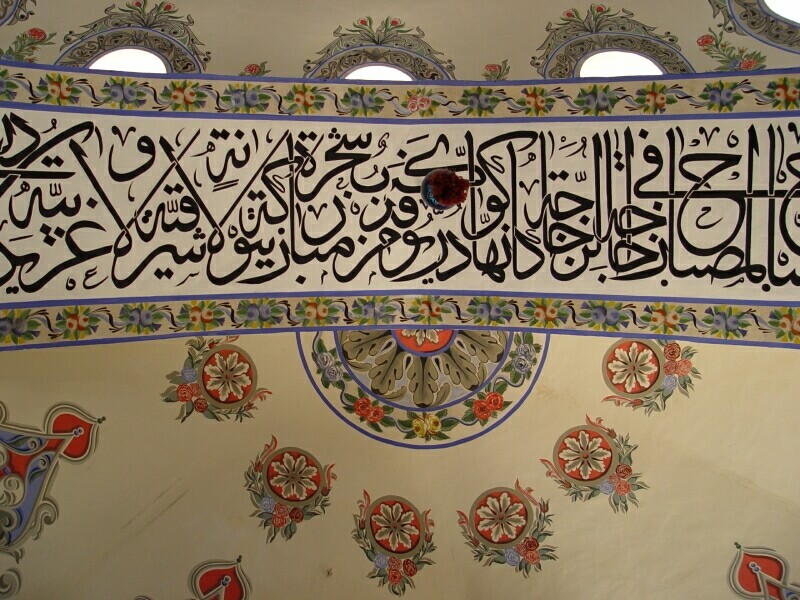 المصباح في زجاجة الزجاجة كأنها كوكب دري يوقد من شجرة مباركة زيتونة لا شرقية ولا غربية